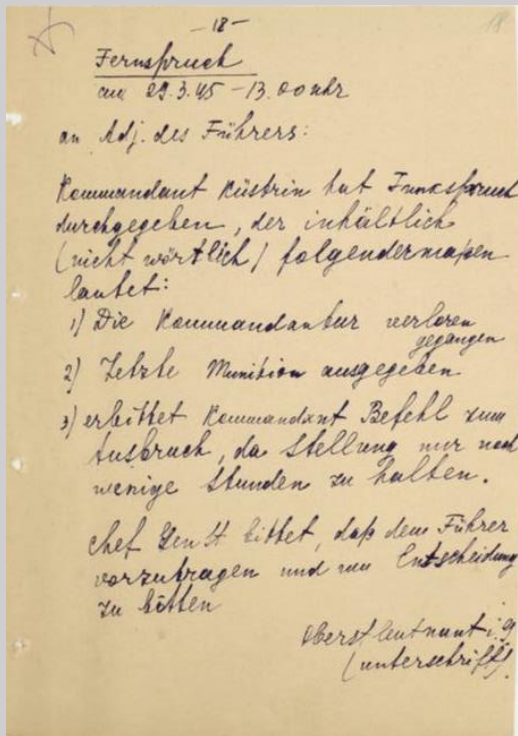 -18-
18
Fernspruch
am 29.3.45 - 13.00 uhr
an Adj. des Führers:
Kommandant Küstrin hat Funkspruch
durchgegeben, der inhältlich
(nicht wörtlich) folgendermaßen
lautet:
1) Die Kommandantur verloren
gegangen
2) Letzte Munition ausgegeben
3) erbittet Kommandant Befehl zum
Ausbruch, da Stellung nur noch
wenige Stunden zu halten.
Chef Gen St bittet, daß dem Führer
vorzutragen und um Entscheidung
zu bitten
Oberstleutnant i. G
(unterschrift)